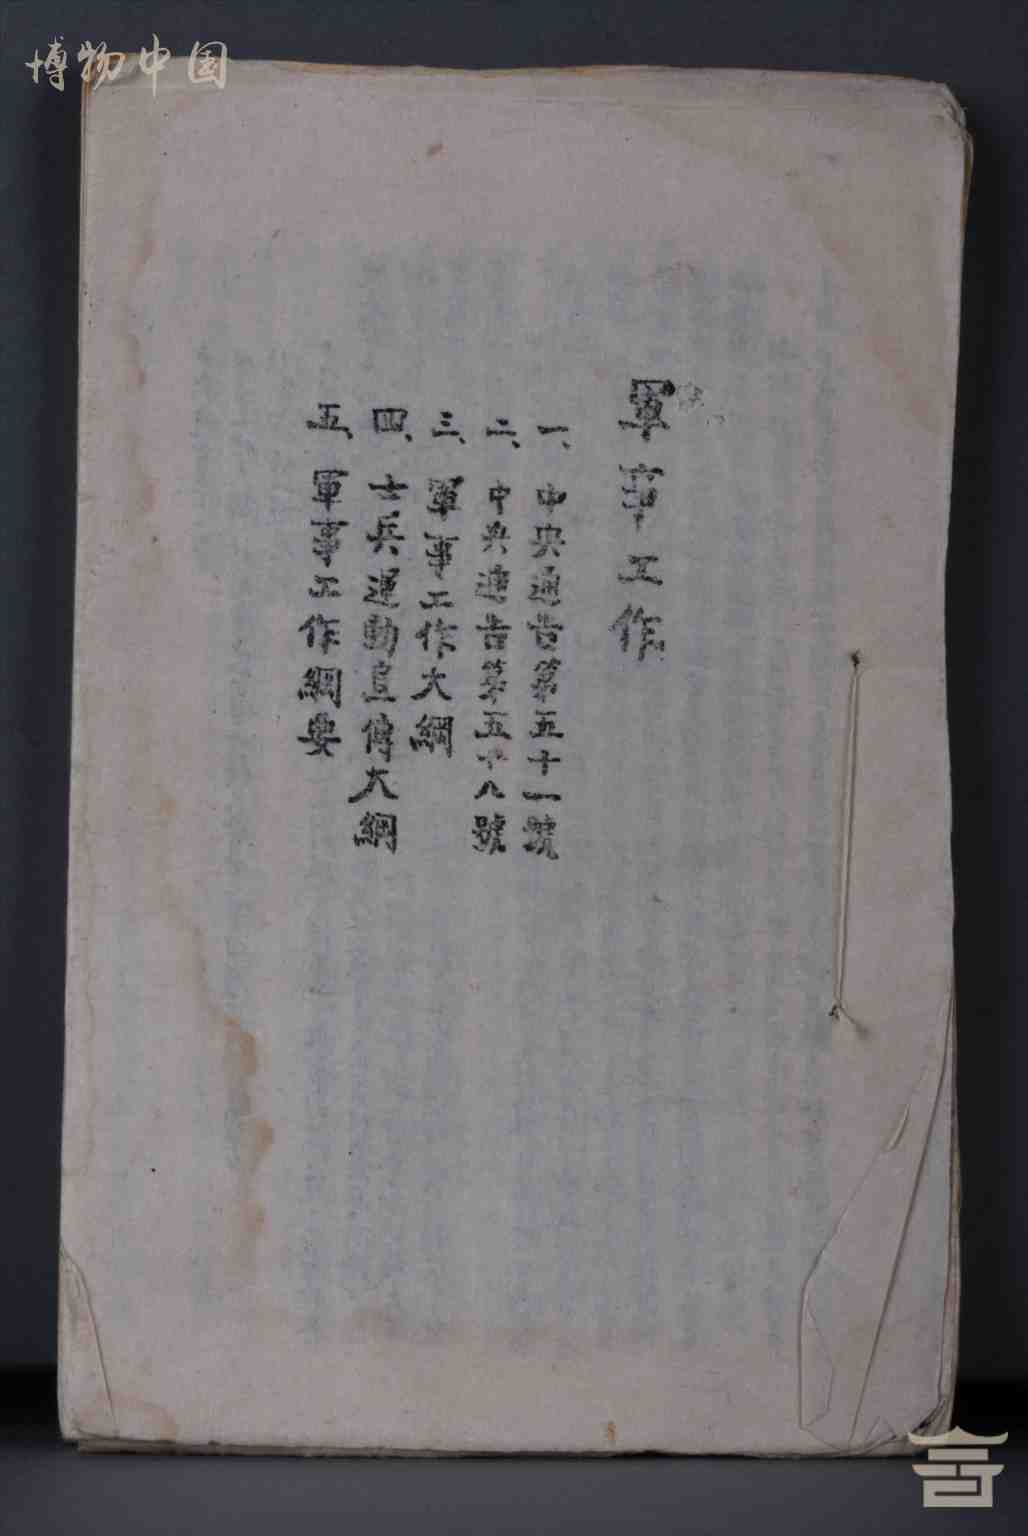 博物中国
軍事工作
一、中央通告第五十一號
二、中央通告第五十八號
三、軍事工作大綱
四、士兵運動宣傳大綱
五、軍事工作綱要